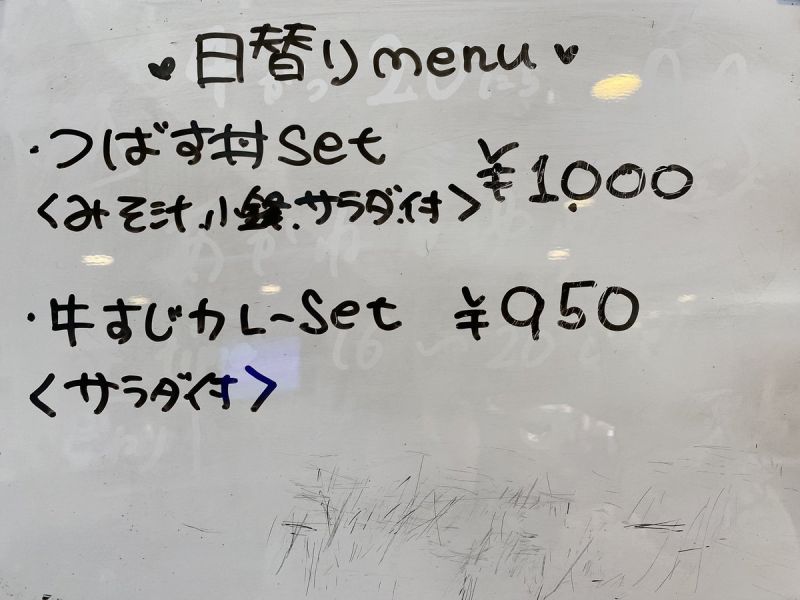 ♥日替りmenu♥
・つばす丼Set ¥1.000
<みそ汁.小鉢.サラダ.付>
・牛すじカレーSet ¥950
<サラダ付>